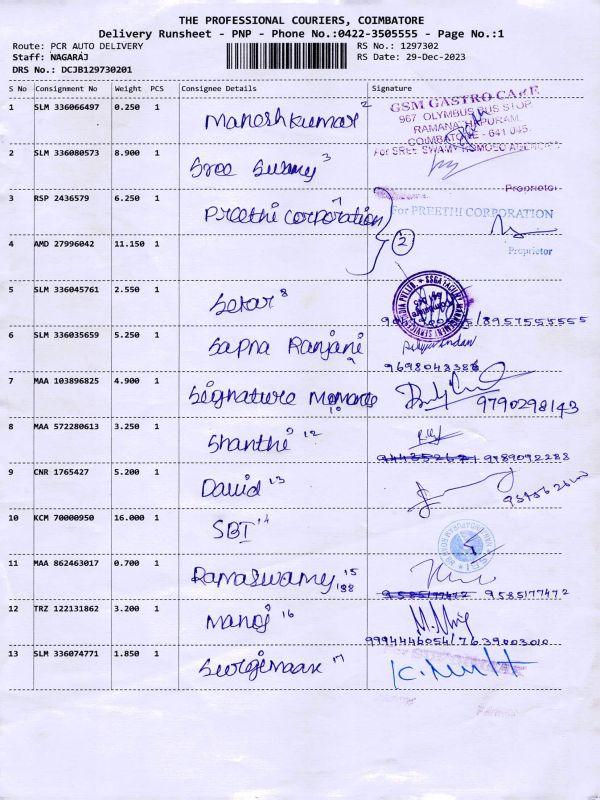 THE PROFESSIONAL COURIERS, COIMBATORE
Delivery Runsheet - PNP - Phone No.:0422-3505555 - Page No.:1
Route: PCR AUTO DELIVERY RS No.: 1297302
Staff: NAGARAJ RS Date: 29-Dec-2023
DRS No.: DCJB129730201
S No Consignment No Weight PCS Consignee Details Signature
1 SLM 336066497 0.250 1 Maneshkumar 2
GSM GASTRO CARE
967 OLYMBUS BUS STOP
RAMANATHAPURAM,
COIMBATORE - 641 045.
2 SLM 336080573 8.900 1 Sree Swamy 3
For SREE SWAMY HOMOEO AGENCY
Proprietor
3 RSP 2436579 6.250 1 Preethi Corporation 7
For PREETHI CORPORATION
Proprietor
4 AMD 27996042 11.150 1 2
5 SLM 336045761 2.550 1 Sekar 8
/8957555555
6 SLM 336035659 5.250 1 Sapna Ranjani 9
9698043386
7 MAA 103896825 4.900 1 Signature 10
9790298143
8 MAA 572280613 3.250 1 Shanthi 12
9789092288
9 CNR 1765427 5.200 1 David 13
10 KCM 70000950 16.000 1 SBI 14
11 MAA 862463017 0.700 1 Ramaswamy 15
188
9585177472 9585177472
12 TRZ 122131862 3.200 1 Manoj 16
9994446054/7639003010
13 SLM 336074771 1.850 1 17